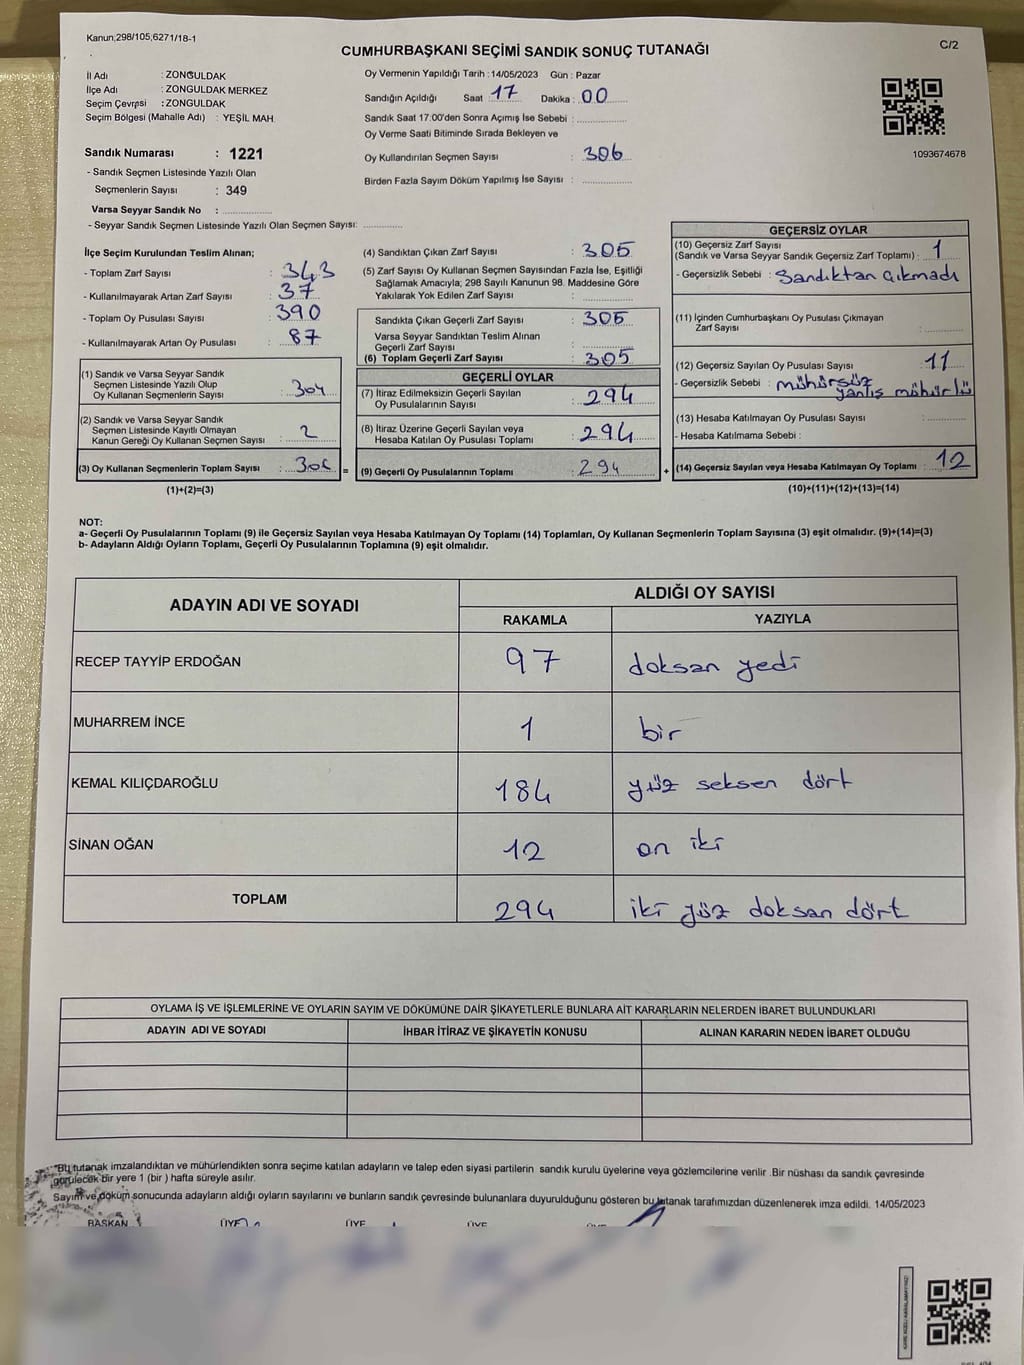 Kanun;298/105;6271/18-1
C/2
CUMHURBAŞKANI SEÇİMİ SANDIK SONUÇ TUTANAĞI
İl Adı : ZONGULDAK
İlçe Adı : ZONGULDAK MERKEZ
Seçim Çevresi : ZONGULDAK
Seçim Bölgesi (Mahalle Adı) : YEŞİL MAH.
Oy Vermenin Yapıldığı Tarih : 14/05/2023 Gün : Pazar
Sandığın Açıldığı Saat 17 Dakika : 00
Sandık Saat 17:00'den Sonra Açımış İse Sebebi :
Oy Verme Saati Bitiminde Sırada Bekleyen ve
Oy Kullandırılan Seçmen Sayısı : 306
Birden Fazla Sayım Döküm Yapılmış İse Sayısı :
1093674678
Sandık Numarası : 1221
- Sandık Seçmen Listesinde Yazılı Olan
Seçmenlerin Sayısı : 349
Varsa Seyyar Sandık No :
- Seyyar Sandık Seçmen Listesinde Yazılı Olan Seçmen Sayısı:
İlçe Seçim Kurulundan Teslim Alınan;
- Toplam Zarf Sayısı : 343
- Kullanılmayarak Artan Zarf Sayısı : 37
- Toplam Oy Pusulası Sayısı : 390
- Kullanılmayarak Artan Oy Pusulası : 87
(1) Sandık ve Varsa Seyyar Sandık
Seçmen Listesinde Yazılı Olup
Oy Kullanan Seçmenlerin Sayısı : 304
(2) Sandık ve Varsa Seyyar Sandık
Seçmen Listesinde Kayıtlı Olmayan
Kanun Gereği Oy Kullanan Seçmen Sayısı : 2
(3) Oy Kullanan Seçmenlerin Toplam Sayısı : 306 =
(1)+(2)=(3)
(4) Sandıktan Çıkan Zarf Sayısı : 305
(5) Zarf Sayısı Oy Kullanan Seçmen Sayısından Fazla İse, Eşitliği
Sağlamak Amacıyla; 298 Sayılı Kanunun 98. Maddesine Göre
Yakılarak Yok Edilen Zarf Sayısı :
Sandıkta Çıkan Geçerli Zarf Sayısı : 305
Varsa Seyyar Sandıktan Teslim Alınan
Geçerli Zarf Sayısı :
(6) Toplam Geçerli Zarf Sayısı : 305
GEÇERLİ OYLAR
(7) İtiraz Edilmeksizin Geçerli Sayılan
Oy Pusulalarının Sayısı : 294
(8) İtiraz Üzerine Geçerli Sayılan veya
Hesaba Katılan Oy Pusulası Toplamı : 294
(9) Geçerli Oy Pusulalarının Toplamı : 294 +
GEÇERSİZ OYLAR
(10) Geçersiz Zarf Sayısı
(Sandık ve Varsa Seyyar Sandık Geçersiz Zarf Toplamı) : 1
- Geçersizlik Sebebi : Sandıktan çıkmadı
(11) İçinden Cumhurbaşkanı Oy Pusulası Çıkmayan
Zarf Sayısı :
(12) Geçersiz Sayılan Oy Pusulası Sayısı : 11
- Geçersizlik Sebebi : mühürsüz
yanlış mühürlü
(13) Hesaba Katılmayan Oy Pusulası Sayısı :
- Hesaba Katılmama Sebebi :
(14) Geçersiz Sayılan veya Hesaba Katılmayan Oy Toplamı : 12
(10)+(11)+(12)+(13)=(14)
NOT:
a- Geçerli Oy Pusulalarının Toplamı (9) ile Geçersiz Sayılan veya Hesaba Katılmayan Oy Toplamı (14) Toplamları, Oy Kullanan Seçmenlerin Toplam Sayısına (3) eşit olmalıdır. (9)+(14)=(3)
b- Adayların Aldığı Oyların Toplamı, Geçerli Oy Pusulalarının Toplamına (9) eşit olmalıdır.
ADAYIN ADI VE SOYADI ALDIĞI OY SAYISI
RAKAMLA YAZIYLA
RECEP TAYYİP ERDOĞAN 97 doksan yedi
MUHARREM İNCE 1 bir
KEMAL KILIÇDAROĞLU 184 yüz seksen dört
SİNAN OĞAN 12 on iki
TOPLAM 294 iki yüz doksan dört
OYLAMA İŞ VE İŞLEMLERİNE VE OYLARIN SAYIM VE DÖKÜMÜNE DAİR ŞİKAYETLERLE BUNLARA AİT KARARLARIN NELERDEN İBARET BULUNDUKLARI
ADAYIN ADI VE SOYADI İHBAR İTİRAZ VE ŞİKAYETİN KONUSU ALINAN KARARIN NEDEN İBARET OLDUĞU
*Bu tutanak imzalandıktan ve mühürlendikten sonra seçime katılan adayların ve talep eden siyasi partilerin sandık kurulu üyelerine veya gözlemcilerine verilir. Bir nüshası da sandık çevresinde
görülecek bir yere 1 (bir ) hafta süreyle asılır.
Sayım ve döküm sonucunda adayların aldığı oyların sayılarını ve bunların sandık çevresinde bulunanlara duyurulduğunu gösteren bu tutanak tarafımızdan düzenlenerek imza edildi. 14/05/2023
BAŞKAN ÜYE ÜYE ÜYE ÜYE